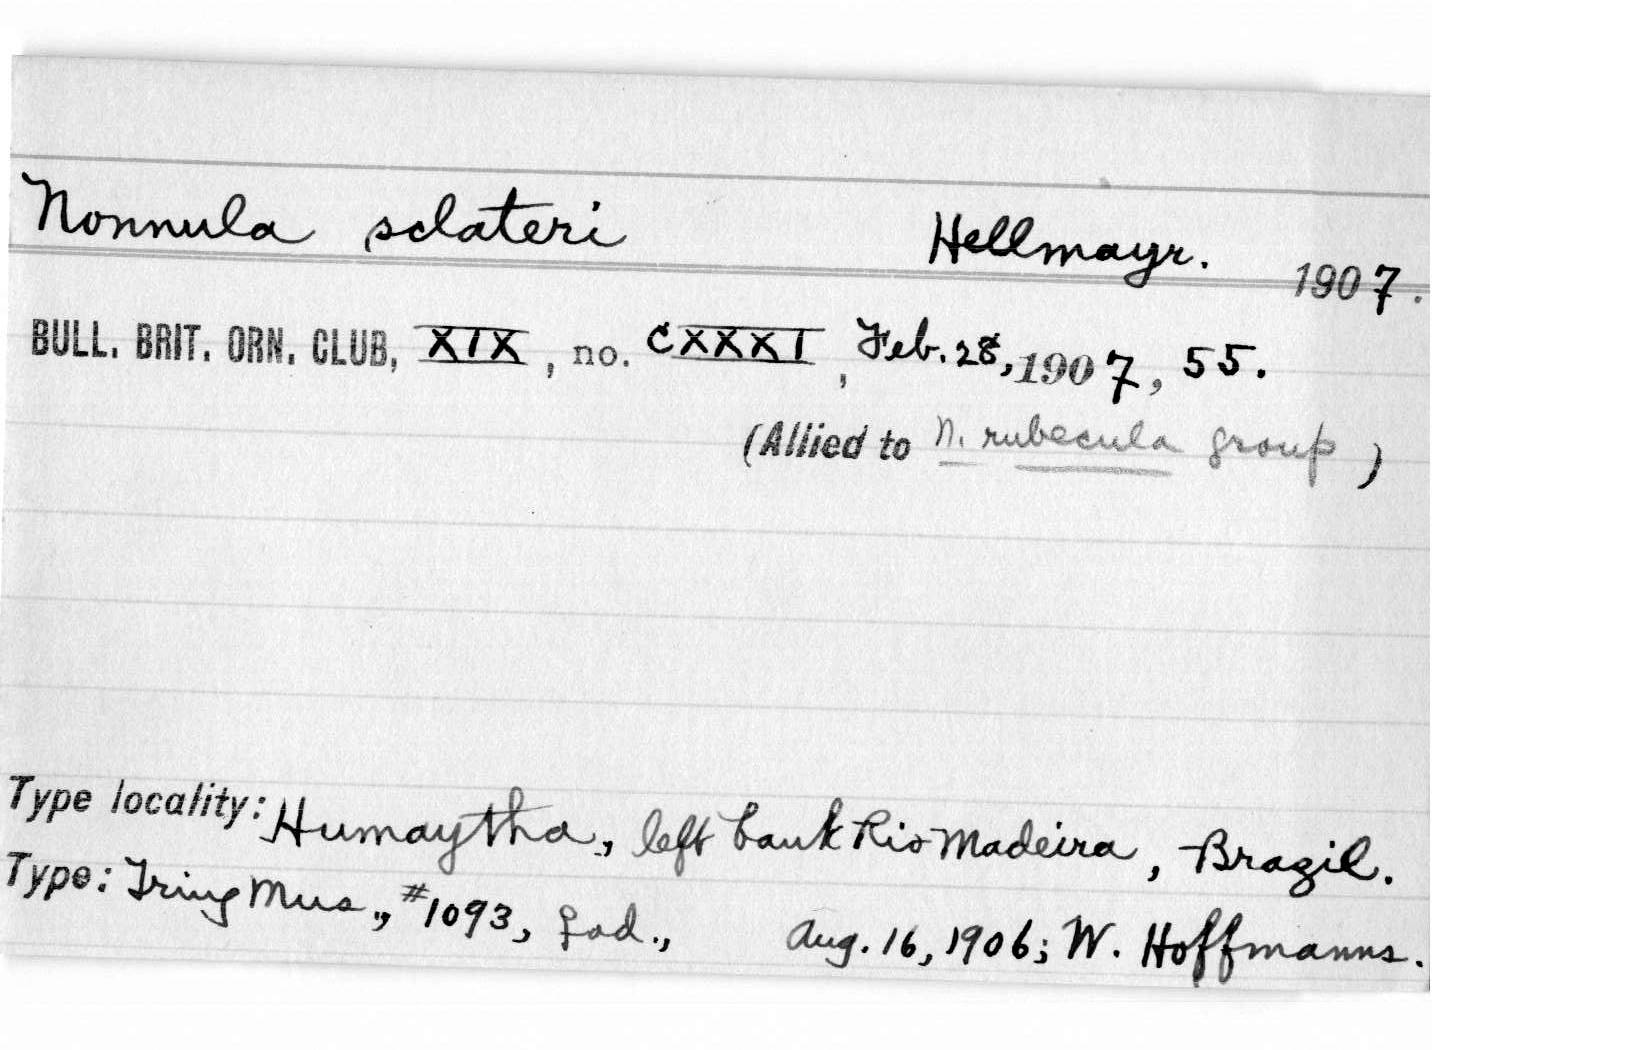 Nonnula sclateri Hellmayr. 1907.
BULL. BRIT. ORN. CLUB, XIX, no. CXXXI, Feb. 28, 1907, 55.
(Allied to N. rubecula group)
Type locality: Humaytha, left bank Rio Madeira, Brazil.
Type: Tring Mus., #1093, ♀ad., Aug. 16, 1906; W. Hoffmanns.